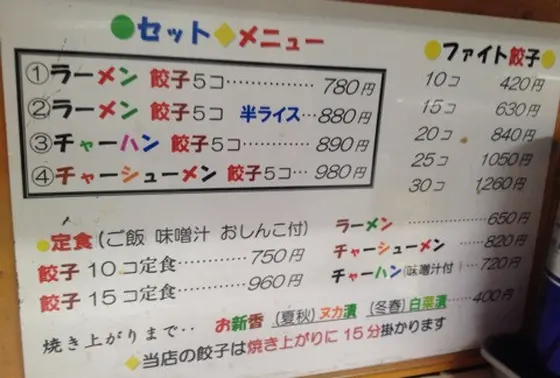 ●セット◆メニュー
①ラーメン 餃子5コ……………780円
②ラーメン 餃子5コ 半ライス…880円
③チャーハン 餃子5コ…………890円
④チャーシューメン 餃子5コ…980円
●ファイト餃子●
10コ 420円
15コ 630円
20コ 840円
25コ 1050円
30コ 1,260円
●定食(ご飯 味噌汁 おしんこ付)
餃子10コ定食……750円
餃子15コ定食……960円
ラーメン……………650円
チャーシューメン……820円
チャーハン(味噌汁付)…720円
焼き上がりまで‥ お新香 (夏秋)ヌカ漬 (冬春)白菜漬……400円
◆当店の餃子は焼き上がりに15分掛かります